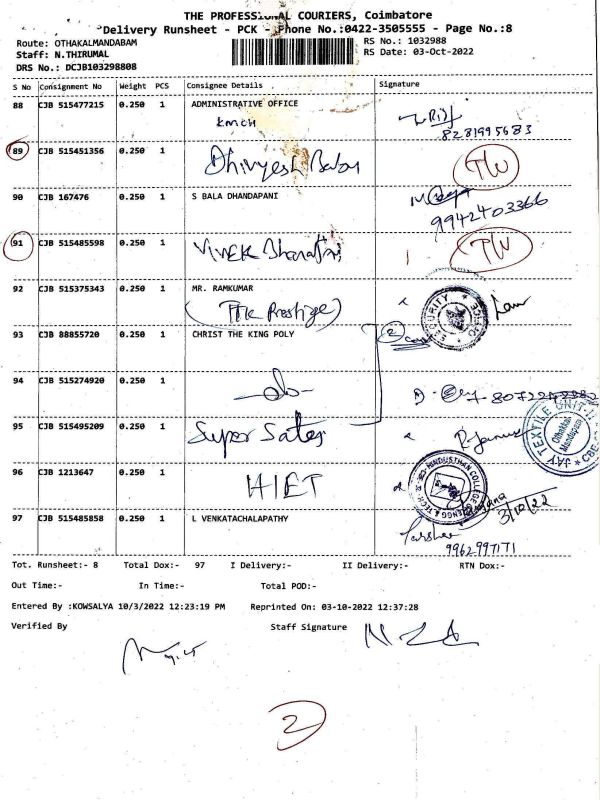 THE PROFESSIONAL COURIERS, Coimbatore
Delivery Runsheet - PCK - Phone No.:0422-3505555 - Page No.:8
Route: OTHAKALMANDABAM
RS No.: 1032988
Staff: N.THIRUMAL
RS Date: 03-Oct-2022
DRS No.: DCJB103298808
S No Consignment No Weight PCS Consignee Details Signature
88 CJB 515477215 0.250 1 ADMINISTRATIVE OFFICE
KMCH
8281995683
89 CJB 515451356 0.250 1 Dhivyesh Babu T/W
90 CJB 167476 0.250 1 S BALA DHANDAPANI
9942403366
91 CJB 515485598 0.250 1 Vivek Bharathi T/W
92 CJB 515375343 0.250 1 MR. RAMKUMAR
(TTK Prestige)
SECURITY OFFICE
93 CJB 88855720 0.250 1 CHRIST THE KING POLY
2
94 CJB 515274920 0.250 1 -do-
95 CJB 515495209 0.250 1 Super Sales
JAY TEXTILE UNIT-II
96 CJB 1213647 0.250 1 HIET
HINDUSTHAN COLLEGE
ENGG & TECH
3/10/22
97 CJB 515485858 0.250 1 L VENKATACHALAPATHY
9962997171
Tot. Runsheet:- 8 Total Dox:- 97 I Delivery:- II Delivery:- RTN Dox:-
Out Time:- In Time:- Total POD:-
Entered By :KOWSALYA 10/3/2022 12:23:19 PM Reprinted On: 03-10-2022 12:37:28
Verified By Staff Signature
2